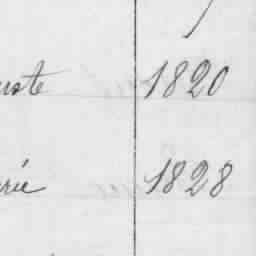 uste 1820
rie 1828